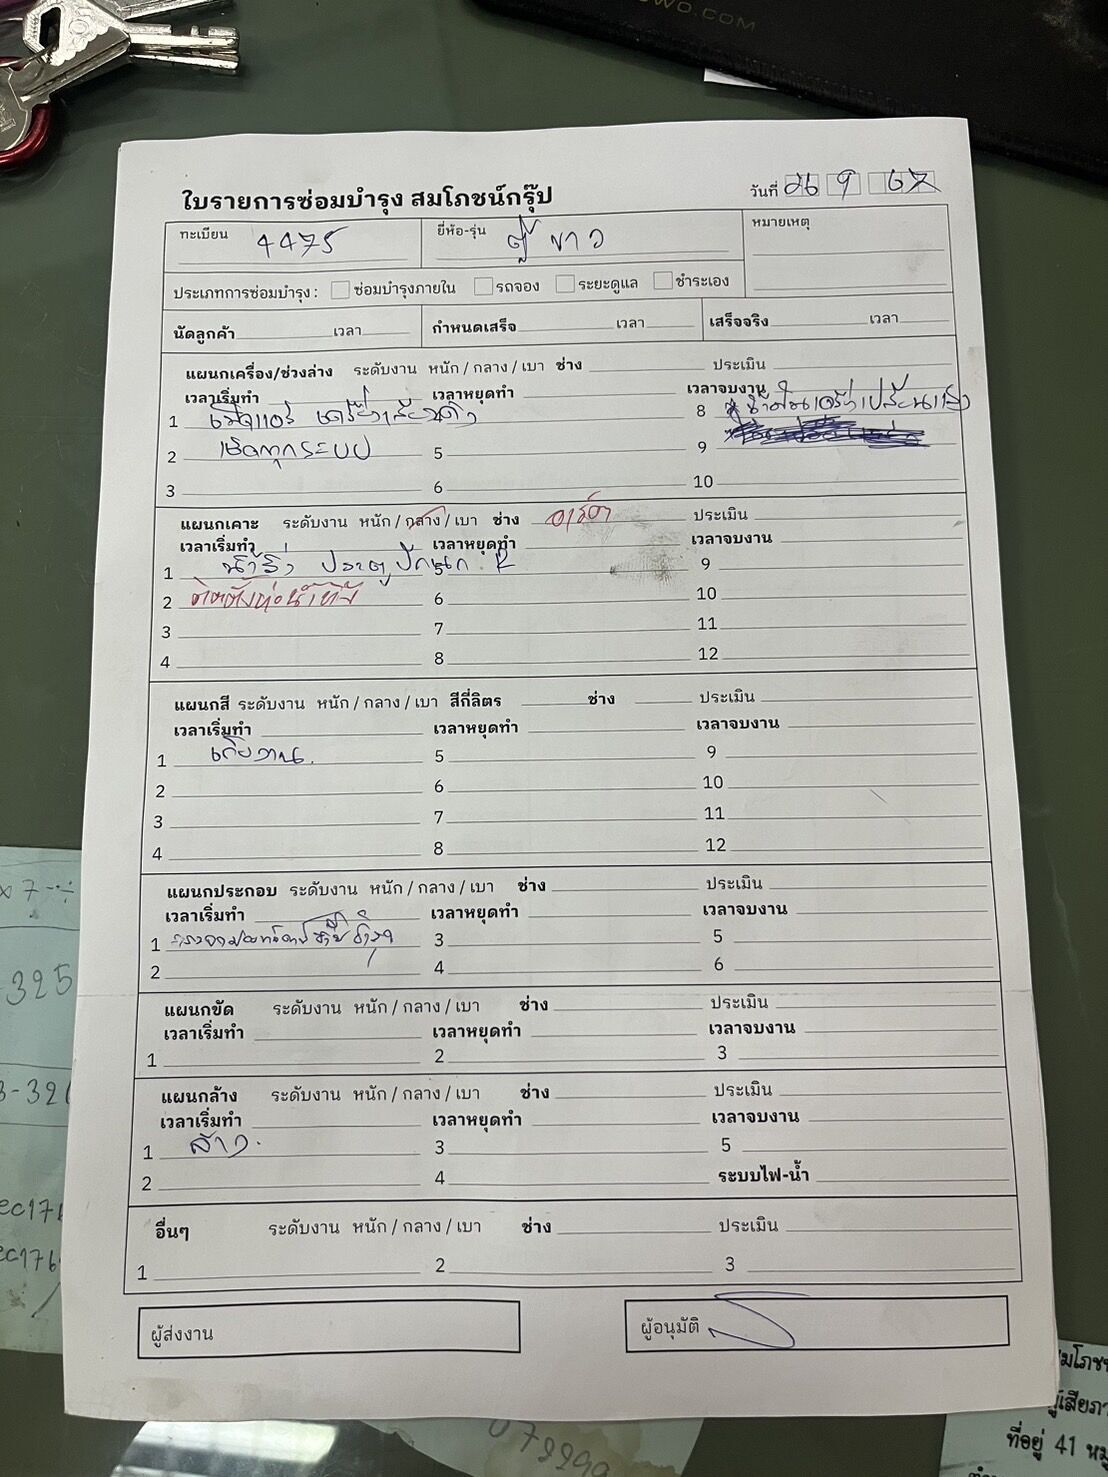 WO.COM
ใบรายการซ่อมบำรุง สมโภชน์กรุ๊ป
วันที่ 26 9 67
ทะเบียน 4475
ยี่ห้อ-รุ่น ตู้ ขาว
หมายเหตุ
ประเภทการซ่อมบำรุง : ซ่อมบำรุงภายใน รถจอง ระยะดูแล ชำระเอง
นัดลูกค้า เวลา กำหนดเสร็จ เวลา เสร็จจริง เวลา
แผนกเครื่อง/ช่วงล่าง ระดับงาน หนัก / กลาง / เบา ช่าง ประเมิน
เวลาเริ่มทำ เวลาหยุดทำ เวลาจบงาน
1 เปิดแอร์ เครื่องเสียงดัง 8 น้ำมันเครื่องเปลี่ยนแล้ว
2 เช็คทุกระบบ 5 9
3 6 10
แผนกเคาะ ระดับงาน หนัก / กลาง / เบา ช่าง ประเมิน
เวลาเริ่มทำ เวลาหยุดทำ เวลาจบงาน
1 น้ำรั่ว ประตู ปีกนก R 5 9
2 ติดตั้งท่อน้ำทิ้ง 6 10
3 7 11
4 8 12
แผนกสี ระดับงาน หนัก / กลาง / เบา สีกี่ลิตร ช่าง ประเมิน
เวลาเริ่มทำ เวลาหยุดทำ เวลาจบงาน
1 เก็บงาน. 5 9
2 6 10
3 7 11
4 8 12
แผนกประกอบ ระดับงาน หนัก / กลาง / เบา ช่าง ประเมิน
เวลาเริ่มทำ เวลาหยุดทำ เวลาจบงาน
1 3 5
2 4 6
แผนกขัด ระดับงาน หนัก / กลาง / เบา ช่าง ประเมิน
เวลาเริ่มทำ เวลาหยุดทำ เวลาจบงาน
1 2 3
แผนกล้าง ระดับงาน หนัก / กลาง / เบา ช่าง ประเมิน
เวลาเริ่มทำ เวลาหยุดทำ เวลาจบงาน
1 ล้าง. 3 5
2 4 ระบบไฟ-น้ำ
อื่นๆ ระดับงาน หนัก / กลาง / เบา ช่าง ประเมิน
1 2 3
ผู้ส่งงาน ผู้อนุมัติ
x 7
325
3-32
ec176
ec176
ที่อยู่ 41 หมู่